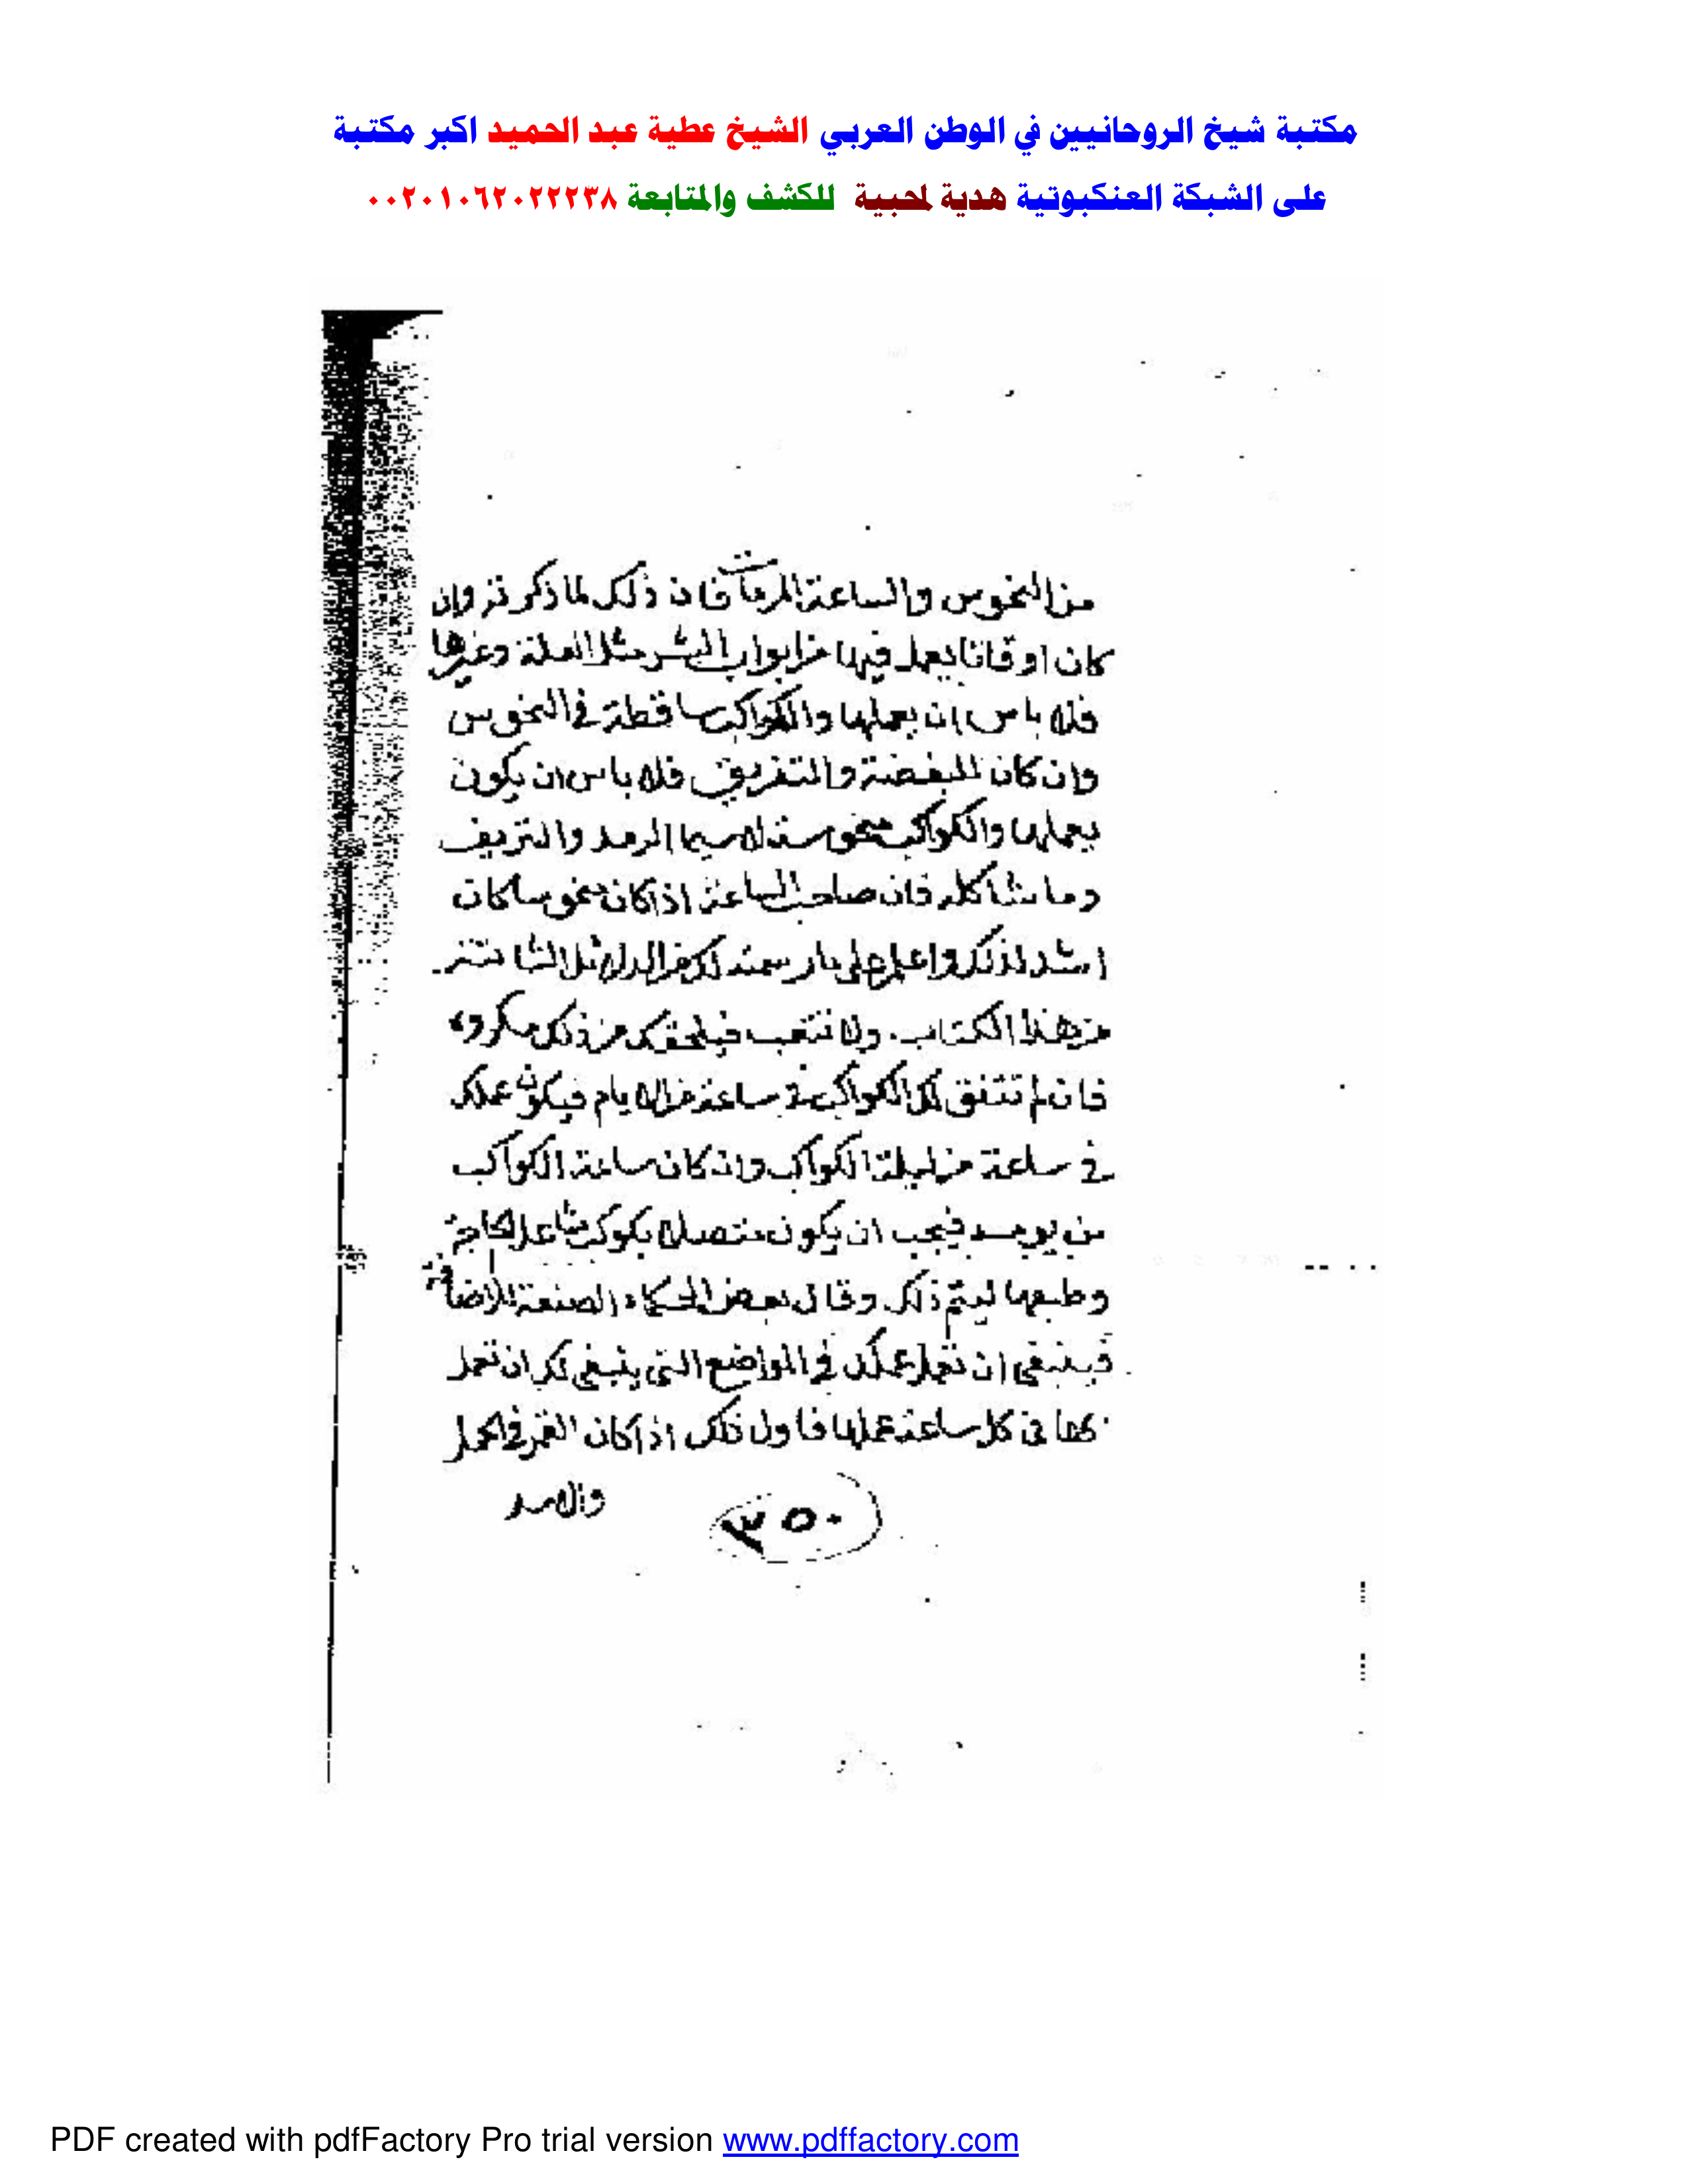 مكتبة شيخ الروحانيين في الوطن العربي الشيخ عطية عبد الحميد اكبر مكتبة
على الشبكة العنكبوتية هدية لمحبية للكشف والمتابعة ٠٠٢٠١٠٦٢٠٢٢٢٣٨
من النحوس والساعة فان ذلك لما ذكرته وان
كان اوقاتا يعمل فيها من ابواب الشر مثل العلة وغيرها
فلا باس ان يعملها والكواكب ساقطة في النحوس
وان كان للبغضة والتفريق فلا باس ان يكون
يعملها والكواكب منحوسة لا سيما الرمد والنزيف
وما شاكله فان صاحب الساعة اذا كان منحوسا كان
اشد لذلك واعلم على
من هذا الكتاب ولا تتعب فيلحقك من ذلك مكروه
فان لم تتفق لك الكواكب في ساعة من الايام فيكون عملك
في ساعة من ليلة الكواكب وان كان ساعة الكواكب
من يومه فيجب ان يكون متصلا بكوكب
وطبعها ليتم ذلك وقال بعض الحكماء الصنعة
فينبغي ان تجعل عملك في المواضع التي ينبغي لك ان تعمل
في كل ساعة عملها فاول ذلك اذا كان القمر في الحمل
والاسد
٣٥٠
PDF created with pdfFactory Pro trial version www.pdffactory.com